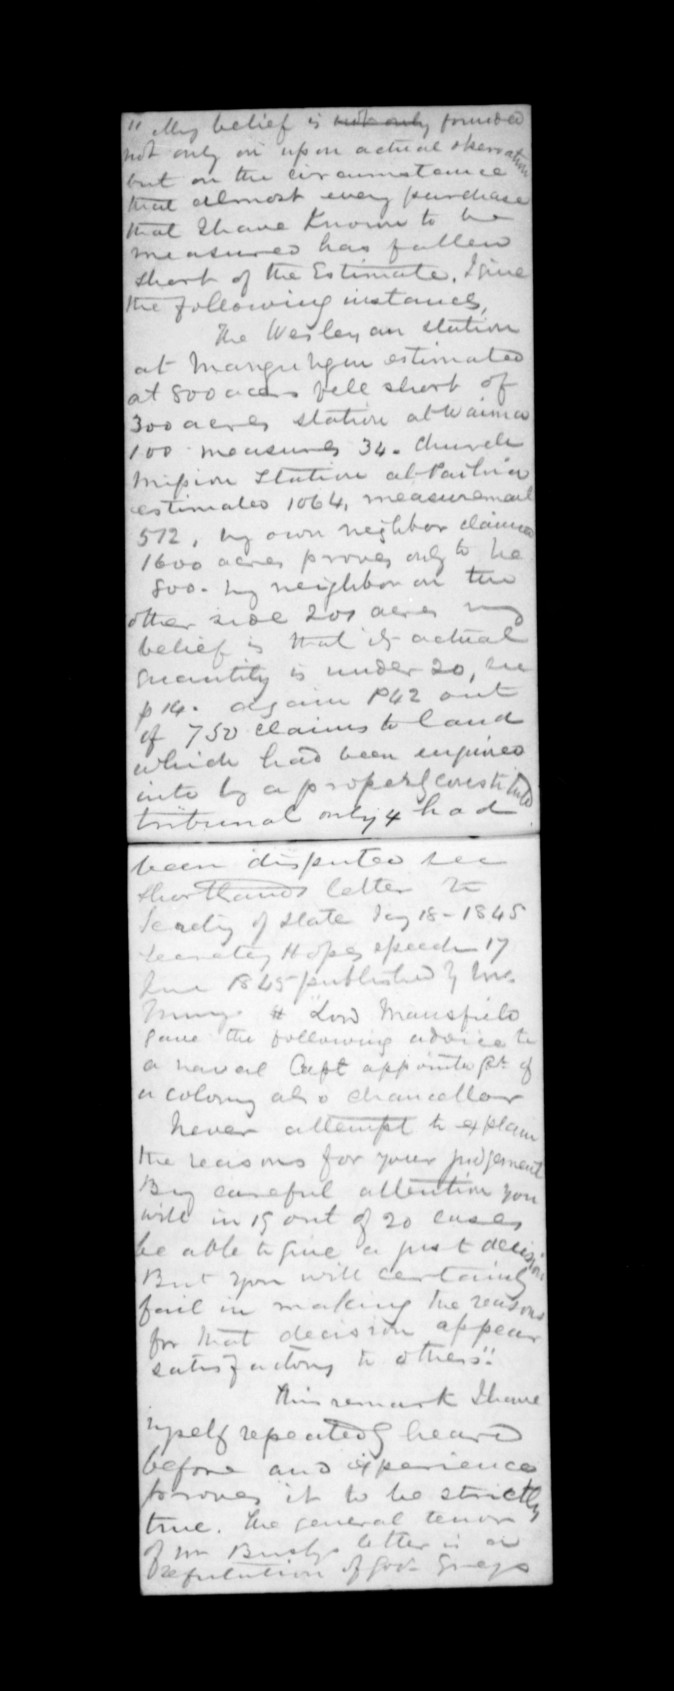 " My belief is not only founded
not only on upon actual observation
but on the circumstance
that almost every purchase
that I have Known to be
measured has fallen
short of the Estimate. I give
the following instances,
The Wesleyan station
at Mangungu estimated
at 800 acres fell short of
300 acres station at Waima
100 measures 34. Church
Mission Station at Paihia
estimated 1064, measurement
512, my own neighbor claimed
1600 acres proves only to be
800. My neighbor on the
other side 201 acres my
belief is that its actual
quantity is under 20, see
p 14. again P42 out
of 750 claims to land
which had been enquired
into by a properly constituted
tribunal only 4 had
been disputed see
Shortlands letter to
Secretry of State 18 - 1845
Secretary Hopes speech 17
June 1845 published by
# "Lord Mansfield
gave the following advice to
a naval Capt appointed of
a colony also chancellor
Never attempt to explain
the reasons for your judgement
By careful attention you
will in 19 out of 20 cases
be able to give a just decision
But you will certainly
fail in making the reasons
for that decision appear
satisfactory to others".
This remark I have
myself repeatedly heard
before and experience
proves it to be strictly
true. The general tenor
of Mr Busbys letter is a
refutation of Gov. Greys